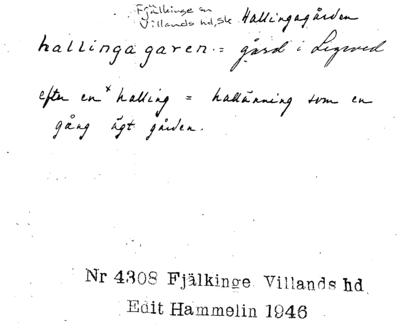 Fjälkinge sn
Villands hd, Sk Hallingagården
hallingagaren = gård i Legeved
efter en * halling = hallänning som en
gång ägt gården.
Nr 4308 Fjälkinge Villands hd
Edit Hammelin 1946